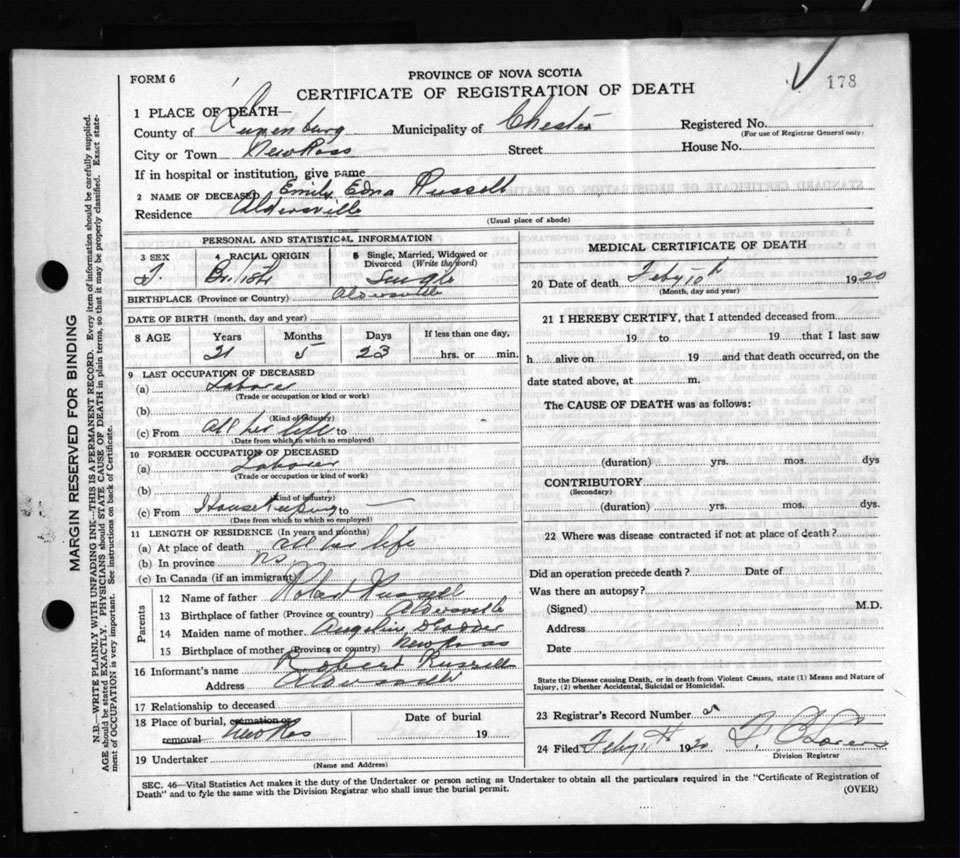 178
FORM 6
PROVINCE OF NOVA SCOTIA
CERTIFICATE OF REGISTRATION OF DEATH
MARGIN RESERVED FOR BINDING
N.B.—WRITE PLAINLY WITH UNFADING INK—THIS IS A PERMANENT RECORD. Every item of information should be carefully supplied.
AGE should be stated EXACTLY. PHYSICIANS should STATE CAUSE OF DEATH in plain terms, so that it may be properly classified. Exact state-
ment of OCCUPATION is very important. See instructions on back of Certificate.
1 PLACE OF DEATH
County of Lunenburg Municipality of Chester Registered No.
(For use of Registrar General only)
City or Town New Ross Street House No.
If in hospital or institution, give name
2 NAME OF DECEASED Emily Edna Russell
Residence Aldersville
(Usual place of abode)
PERSONAL AND STATISTICAL INFORMATION
3 SEX 4 RACIAL ORIGIN 5 Single, Married, Widowed or Divorced (Write the word)
F British Single
BIRTHPLACE (Province or Country) Aldersville
DATE OF BIRTH (month, day and year)
8 AGE Years Months Days If less than one day,
21 5 23 hrs. or min.
9 LAST OCCUPATION OF DECEASED
(a) Laborer
(Trade or occupation or kind or work)
(b)
(Kind of industry)
(c) From All her life to
(Date from which to which so employed)
10 FORMER OCCUPATION OF DECEASED
(a) Laborer
(Trade or occupation or kind of work)
(b)
(Kind of industry)
(c) From Housekeeping to
(Date from which to which so employed)
11 LENGTH OF RESIDENCE (In years and months)
(a) At place of death All her life
(b) In province N.S.
(c) In Canada (if an immigrant)
Parents
12 Name of father Robert Russell
13 Birthplace of father (Province or country) Aldersville
14 Maiden name of mother
15 Birthplace of mother (Province or country) New Ross
16 Informant's name Robert Russell
Address Aldersville
17 Relationship to deceased
18 Place of burial, cremation or removal New Ross Date of burial 19
19 Undertaker
(Name and Address)
MEDICAL CERTIFICATE OF DEATH
20 Date of death Feby 1920
(Month, day and year)
21 I HEREBY CERTIFY, that I attended deceased from
19 to 19 that I last saw
h alive on 19 and that death occurred, on the
date stated above, at m.
The CAUSE OF DEATH was as follows:
(duration) yrs. mos. dys
CONTRIBUTORY
(Secondary)
(duration) yrs. mos. dys.
22 Where was disease contracted if not at place of death?
Did an operation precede death? Date of
Was there an autopsy?
(Signed) M.D.
Address
Date
State the Disease causing Death, or in death from Violent Causes, state (1) Means and Nature of
Injury, (2) whether Accidental, Suicidal or Homicidal.
23 Registrar's Record Number
24 Filed Feby 1920
Division Registrar
SEC. 46—Vital Statistics Act makes it the duty of the Undertaker or person acting as Undertaker to obtain all the particulars required in the "Certificate of Registration of
Death" and to fyle the same with the Division Registrar who shall issue the burial permit.
(OVER)